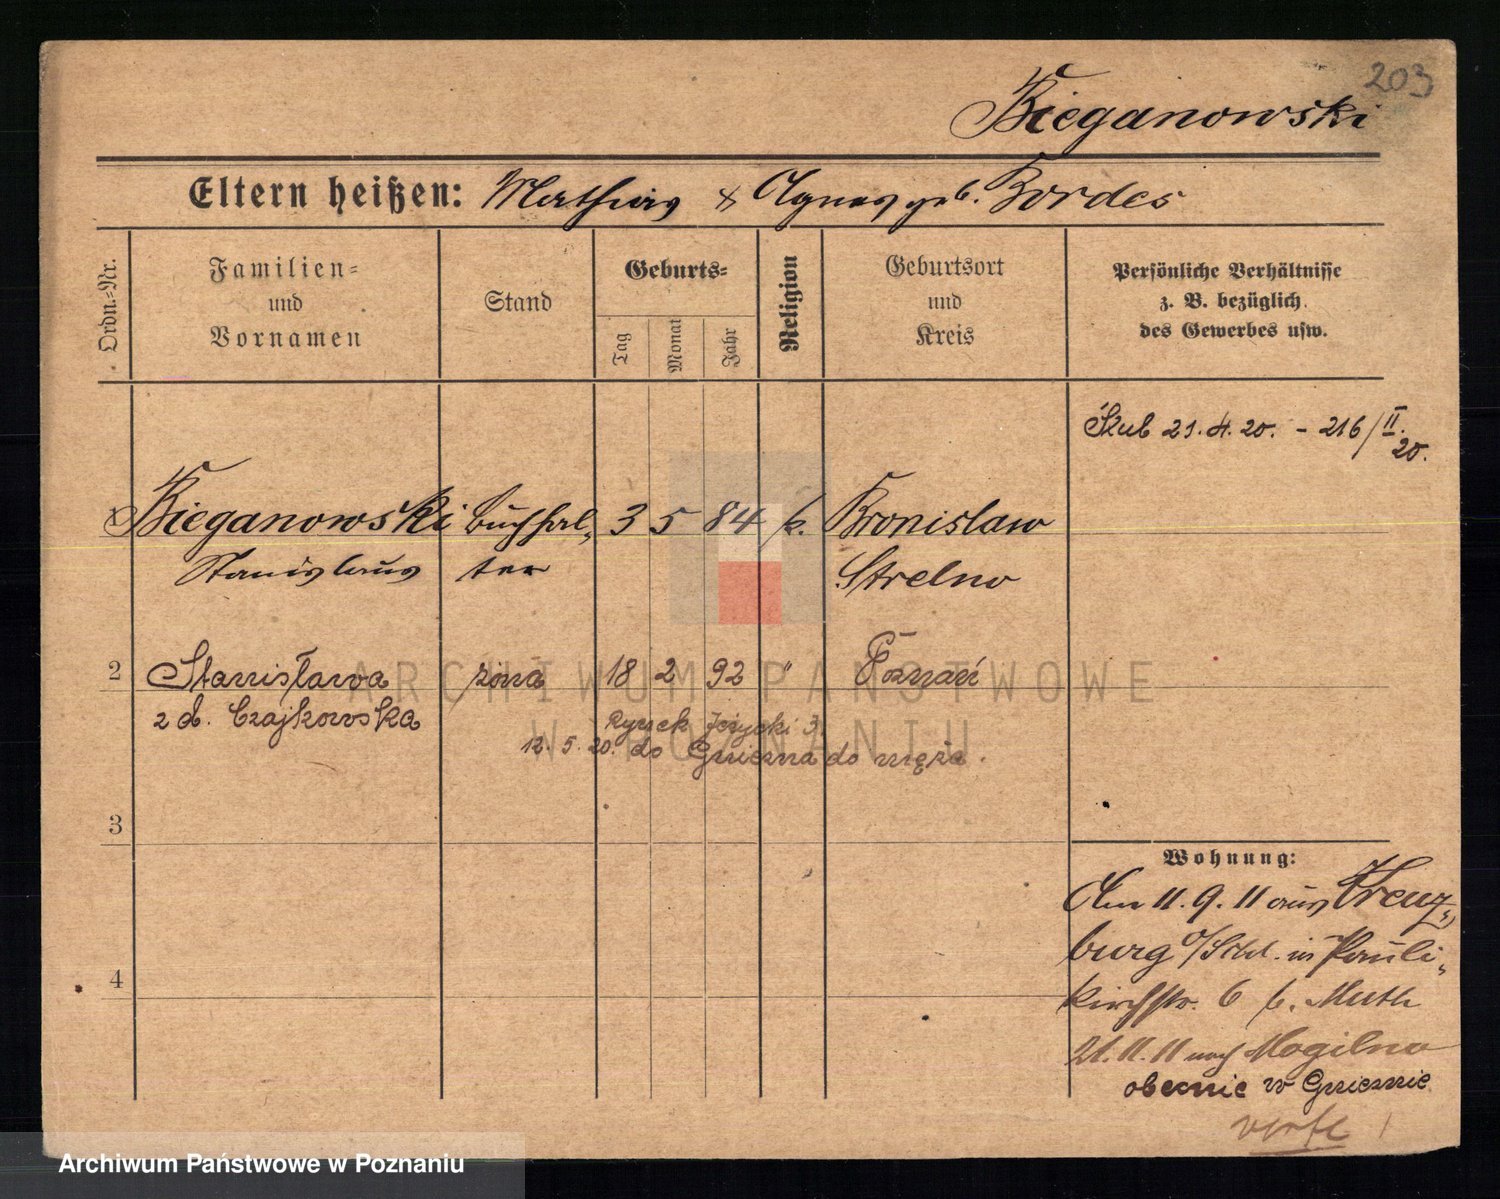 203
Bieganowski
Eltern heißen: Mathias & Agnes geb. Kordes
Ordn.-Nr.
Familien-
und
Vornamen
Stand
Geburts-
Tag
Monat
Jahr
Religion
Geburtsort
und
Kreis
Persönliche Verhältnisse
z. B. bezüglich
des Gewerbes usw.
Ślub 21.4.20. - 216/II.
20.
1 Bieganowski Buchhal- 3 5 84 k. Bronislaw
Stanislaus ter Strelno
2 Stanisława żona 18 2 92 " Poznań
z d. Czajkowska
Rynek Jeżycki 3.
12. 5. 20. do Gniezna do męża.
3
4
Wohnung:
Am 11. 9. 11 aus Kreuz-
burg O/Schl. in Pauli-
kirchstr. 6 b. Muth
21. 11. 11 nach Mogilno
obecnie w Gnieźnie
ARCHIWUM PAŃSTWOWE
W POZNANIU
Archiwum Państwowe w Poznaniu